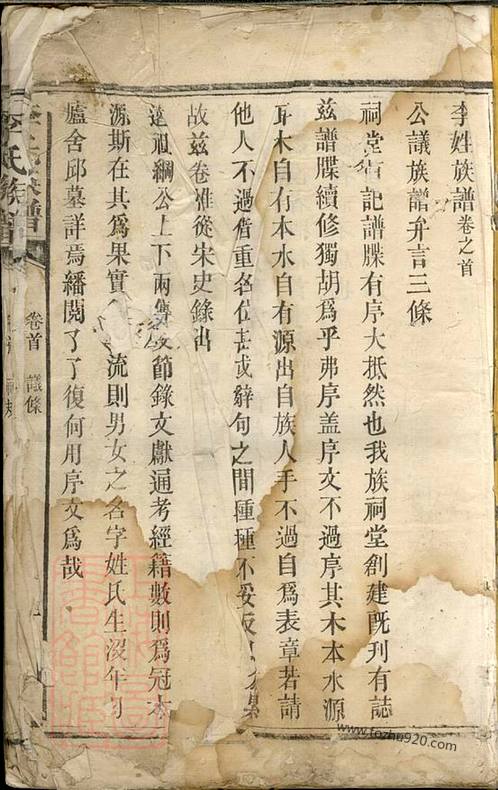 李姓族譜卷之首
公議族譜弁言三條
祠堂有記譜牒有序大抵然也我族祠堂創建既刊有誌
茲譜牒續修獨胡爲乎弗序盖序文不過序其木本水源
耳木自有本水自有源出自族人手不過自爲表章若請
他人不過借重名位甚或辭句之間種種不妥反
故茲卷惟從宋史錄出
遠祖綱公上下兩傳及節錄文獻通考經籍數則爲冠本
源斯在其爲果實 流則男女之名字姓氏生沒年月
廬舍邱墓詳焉繙閱了了復何用序文爲哉
李氏族譜
卷首 議條
www.fozhu920.com